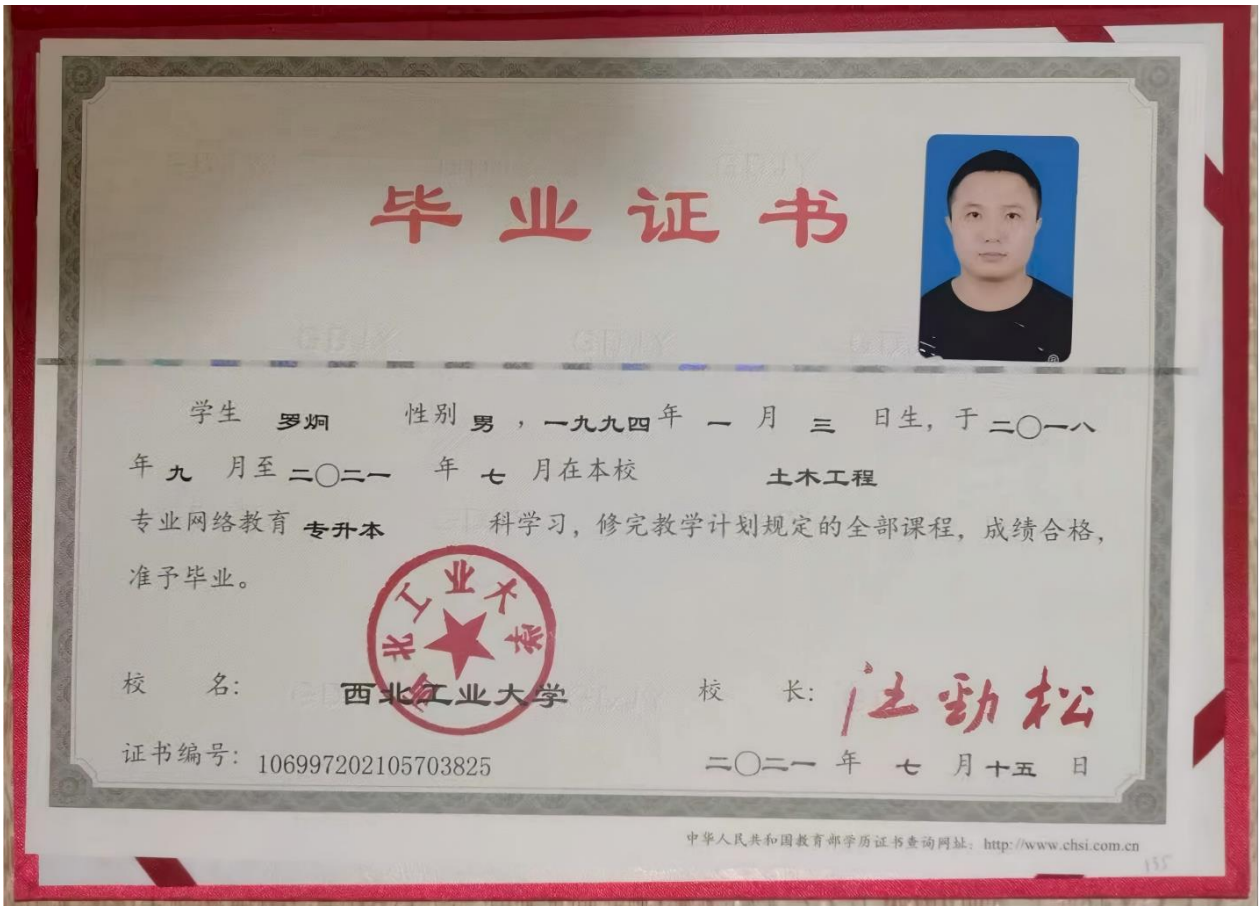 毕业证书
学生 罗炯 性别 男，一九九四年 一 月 三 日生，于 二〇一八
年 九 月至 二〇二一 年 七 月在本校 土木工程
专业网络教育 专升本 科学习，修完教学计划规定的全部课程，成绩合格，
准予毕业。
西北工业大学
校 名：西北工业大学 校 长：汪劲松
证书编号：106997202105703825 二〇二一 年 七 月 十五 日
中华人民共和国教育部学历证书查询网址：http://www.chsi.com.cn
135